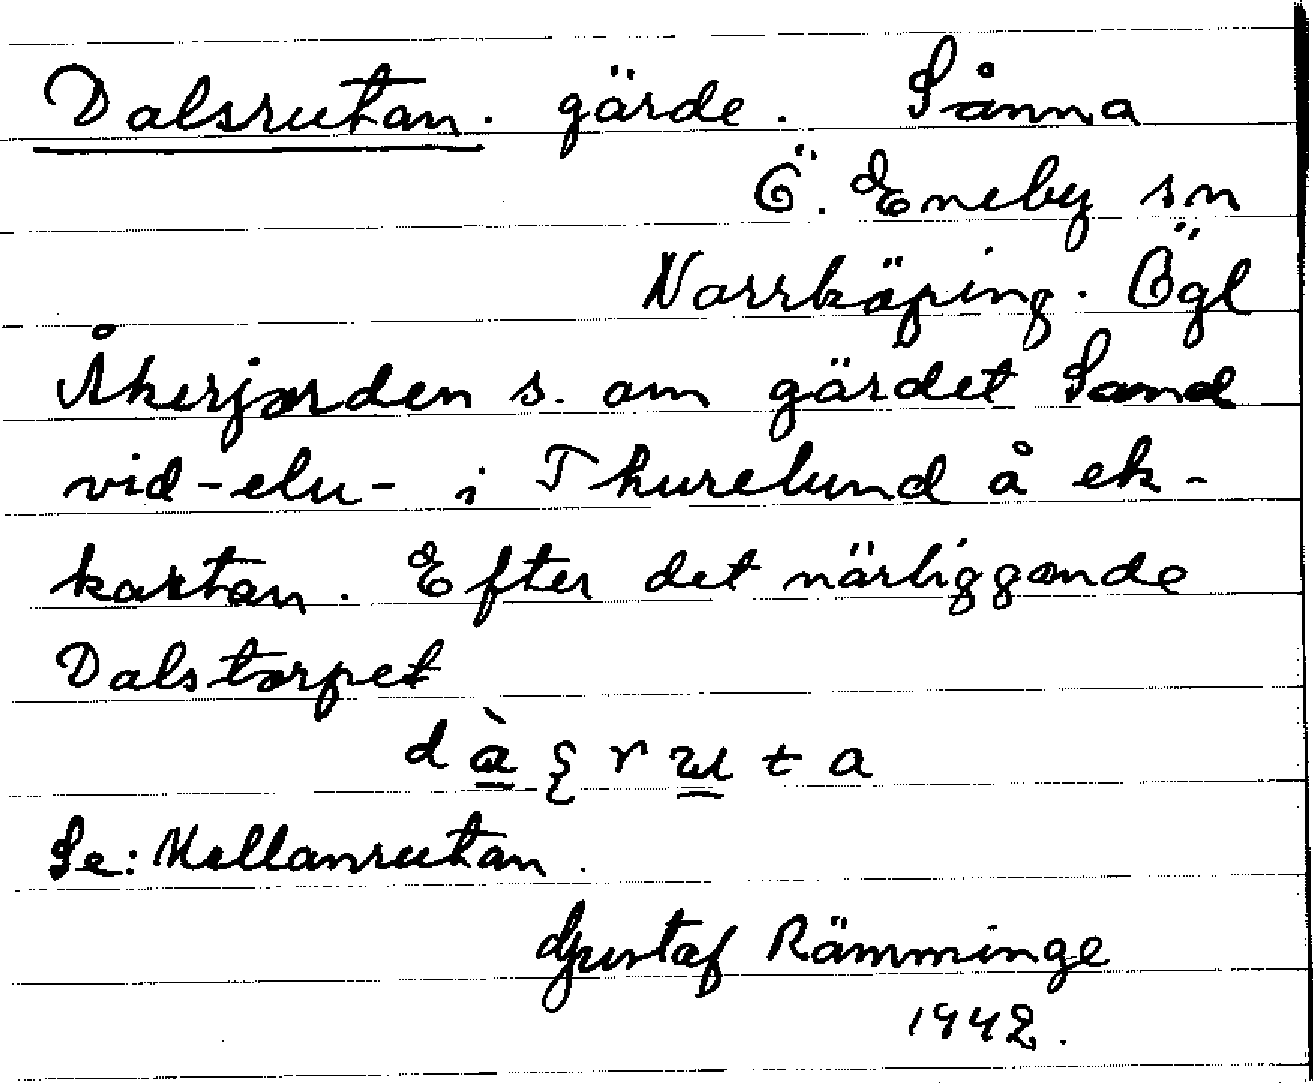 Dalsrutan. gärde. Sånna
Ö. Eneby sn
Norrköping. Ögl
Åkerjorden s. om gärdet Sand
vid -elu- i Thurelund å ek-
kartan. Efter det närliggande
Dalstorpet
d à̲ ꜩ r u̲ t a
Se: Mellanrutan.
Gustaf Rämminge
1942.